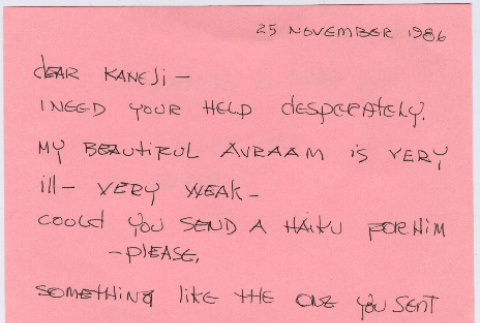 25 NOVEMBER 1986
dEAR KANEJi —
I NEED YOUR HELP dESPERATELY.
MY BEAUTIFUL AVRAAM iS VERY
ill — VERY WEAK —
COULd YOU SEND A HAIKU FOR HIM
— PLEASE,
SOMETHING liKE THE ONE YOU SENT